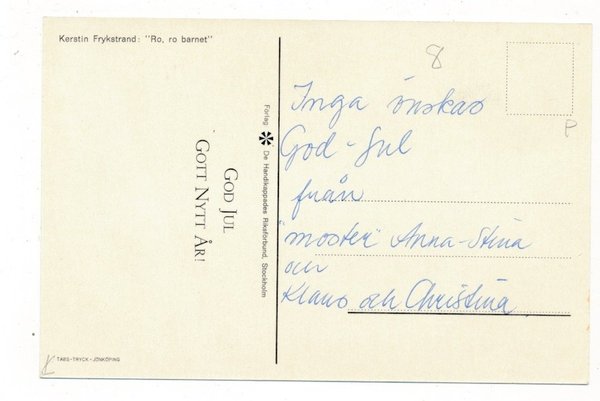 Kerstin Frykstrand: "Ro, ro barnet"
8
P
Inga önskas
God-Jul
från
"moster" Anna-Stina
och
Klaus och Christina
Förlag De Handikappades Riksförbund, Stockholm
GOD JUL
GOTT NYTT ÅR!
K
TABS-TRYCK - JÖNKÖPING